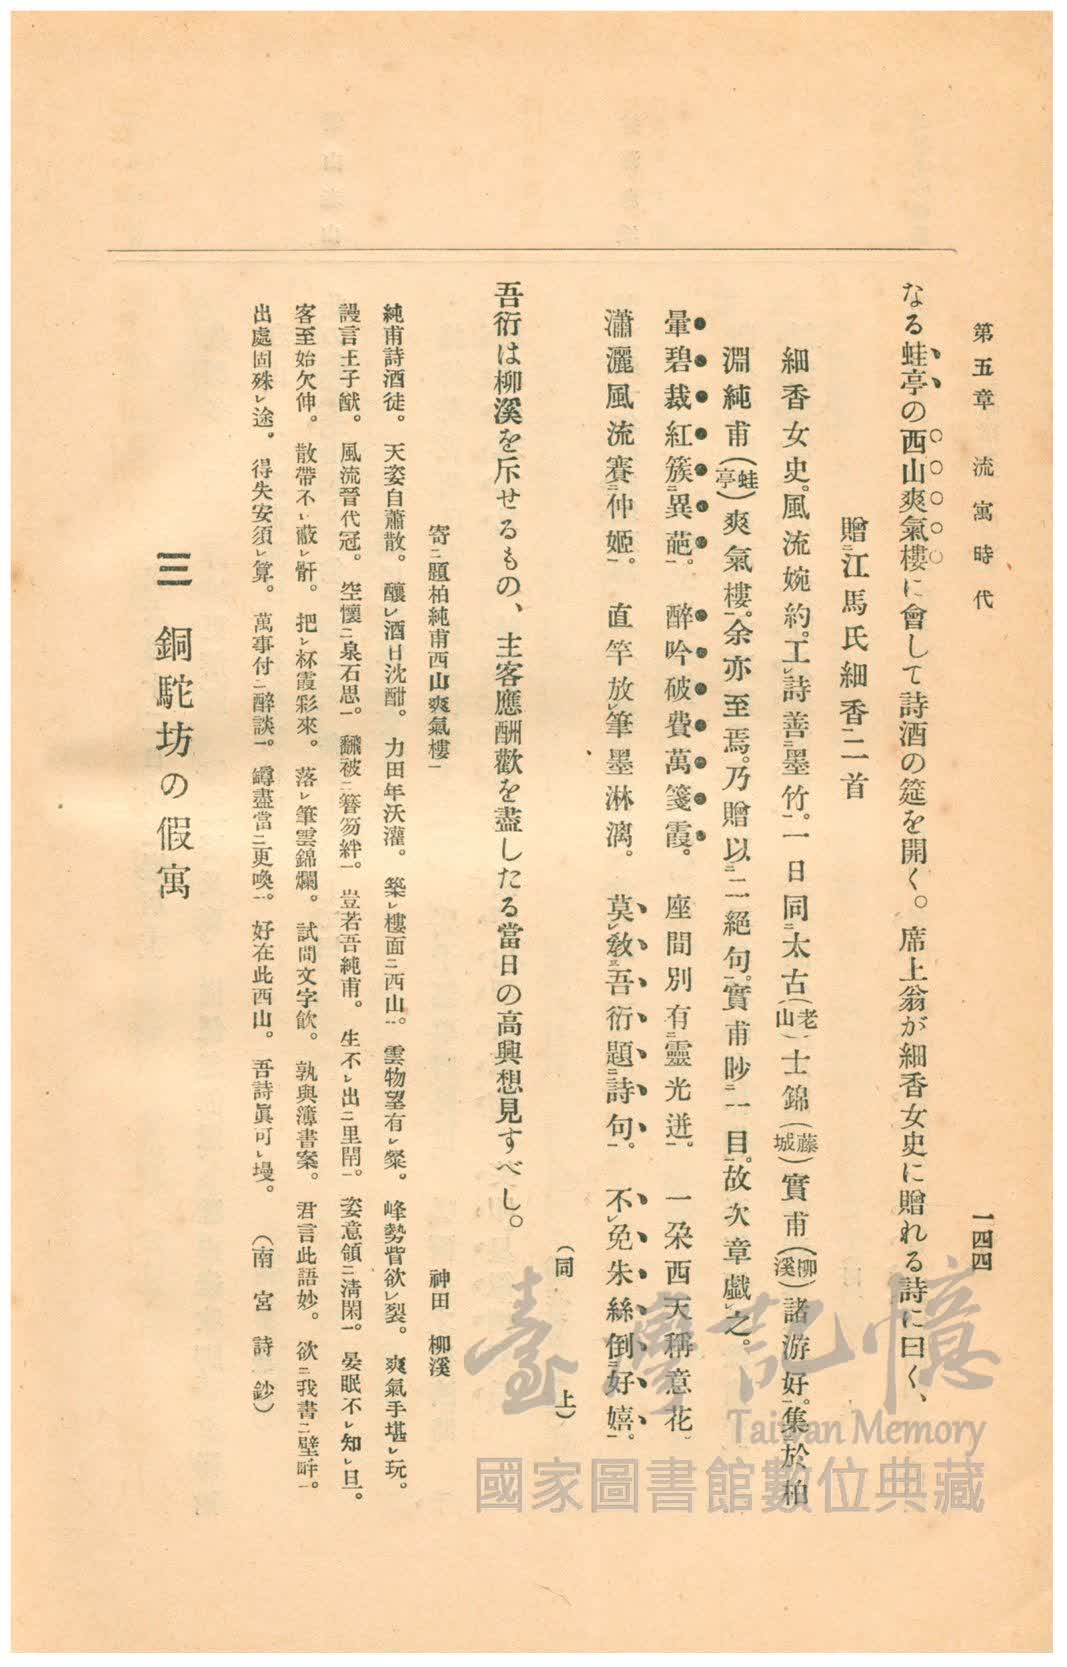 第五章 流寓時代
一四四
なる蛙亭の西山爽氣樓に會して詩酒の筵を開く。席上翁が細香女史に贈れる詩に曰く、
贈二江馬氏細香二首
細香女史。風流婉約。工レ詩善二墨竹一。一日同二太古(老山)士錦(藤城)實甫(柳溪)諸游好一。集於柏
淵純甫(蛙亭)爽氣樓。余亦至焉。乃贈以二二絕句一。實甫眇二一目一。故次章戲レ之。
暈碧裁紅簇二異葩一。 醉吟破費萬箋霞。 座間別有二靈光迸一。 一朶西天稱意花。
瀟灑風流賽二仲姬一。 直竿放レ筆墨淋漓。 莫レ敎三吾衍題二詩句一。 不レ免朱絲倒二好嬉一。
(同 上)
吾衍は柳溪を斥せるもの、主客應酬歡を盡したる當日の高興想見すべし。
寄二題柏純甫西山爽氣樓一
神田 柳溪
純甫詩酒徒。 天姿自蕭散。 釀レ酒日沈酣。 力田年沃灌。 築レ樓面二西山一。 雲物望有レ粲。 峰勢眥欲レ裂。 爽氣手堪レ玩。
謾言王子猷。 風流晉代冠。 空懷二泉石思一。 翻被二簪笏絆一。 豈若吾純甫。 生不レ出二里閈一。 姿意領二淸閑一。 晏眠不レ知レ旦。
客至始欠伸。 散帶不レ蔽レ骭。 把レ杯霞彩來。 落レ筆雲錦爛。 試問文字飮。 孰與簿書案。 君言此語妙。 欲二我書二壁畔一。
出處固殊レ途。 得失安須レ算。 萬事付二醉談一。 罇盡當二更喚一。 好在此西山。 吾詩眞可レ墁。 (南宮詩鈔)
三 銅駝坊の假寓
臺灣記憶
Taiwan Memory
國家圖書館數位典藏